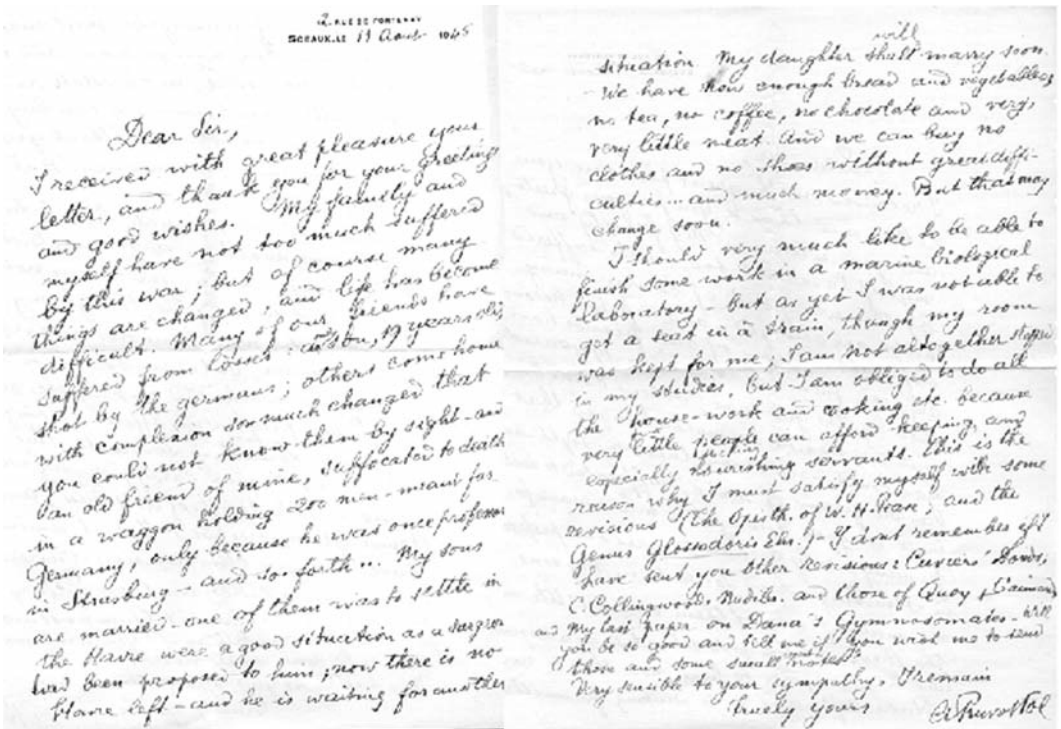 2. RUE DE FONTENAY
SCEAUX, LE 11 Aout 1945
Dear Sir,
I received with great pleasure your
letter, and thank you for your greetings
and good wishes. My family and
myself have not too much suffered
by this war; but of course many
things are changed; and life has become
difficult. Many of our friends have
suffered from losses: a son, 19 years old,
shot by the germans; others come home
with complexion so much changed that
you could not know them by sight - and
an old friend of mine, suffocated to death
in a waggon holding 200 men - meant for
Germany, only because he was once professor
in Strasburg - and so forth... My sons
are married - one of them was to settle in
the Havre were a good situation as a surgeon
had been proposed to him; now there is no
Havre left - and he is waiting for another
will
situation. My daughter shall marry soon.
- We have now enough bread and vegetables,
no tea, no coffee, no chocolate and very,
very little meat. And we can buy no
clothes and no shoes without great diffi-
culties... and much money. But that may
change soon.
I should very much like to be able to
finish some work in a marine biological
laboratory - but as yet I was not able to
get a seat in a train, though my room
was kept for me. I am not altogether stopped
in my studies, but I am obliged to do all
the house-work and cooking etc. because
very little people can afford keeping, and
especially nourishing servants. This is the
reason why I must satisfy myself with some
revisions (The Opisth. of W. H. Pease, and the
Genus Glossodoris Ehr.) - I dont remember if I
have sent you other revisions: Cuvier's Doris,
C. Collingwood's Nudibr. and those of Quoy & Gaimard
and my last paper on Dana's Gymnosomates - Will
you be so good and tell me if you wish me to send
those and some small notes?
Very sensible to your sympathy, I remain
truely yours
A Pruvot Fol